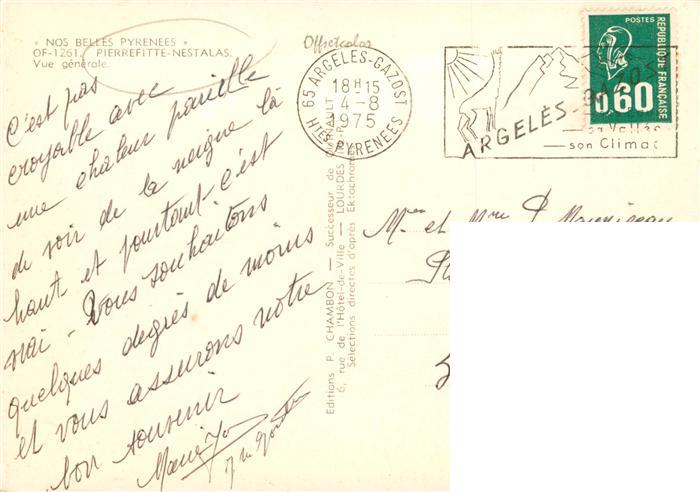 « NOS BELLES PYRENEES »
OF-1261. PIERREFITTE-NESTALAS.
Vue générale.
C'est pas
croyable avec
une chaleur pareille
de voir de la neige là
haut et pourtant c'est
vrai - Vous souhaitons
quelques degrés de moins
et vous assurons notre
bon souvenir
Offsetcolor
65 ARGELES-GAZOST
18 H 15
4-8
1975
HTES PYRENEES
ARGELÈS-GAZOST
sa Vallée
son Climat
POSTES
REPUBLIQUE FRANÇAISE
0,60
Editions P. CHAMBON — Successeur de
6, rue de l'Hôtel-de-Ville — LOURDES
Sélections directes d'après Ektachrome
et Mme P.